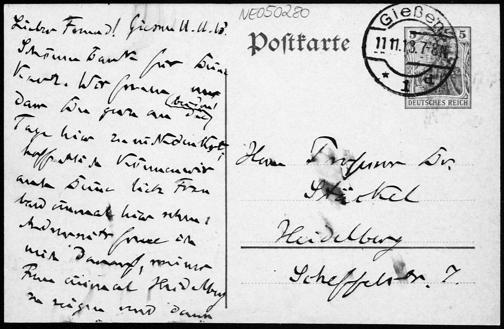 NE050280
Lieber Freund! Giessen 11.11.13.
Schönen Dank für Deine
Karte. Wir freuen uns
(beide)
dass Du gern an
Tage hier
hoffentlich können wir
auch Deine liebe Frau
bald einmal hier sehen.
Andererseits freue ich
mich darauf, meiner
Frau einmal Heidelberg
zu zeigen und dann
Postkarte
Gießen
11.11.13.7-8N.
* 1 d
5 5
DEUTSCHES REICH
Herrn Professor Dr.
Stäckel
Heidelberg
Scheffelstr. 7.